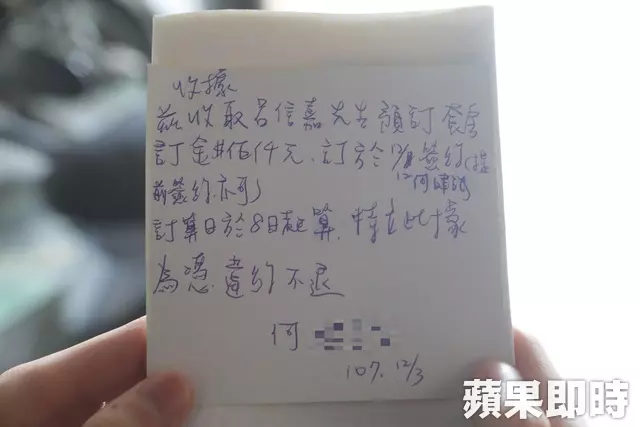 收據
茲收取呂信嘉先生預訂套房
訂金#伍仟元.訂於12/8簽約(提
前簽約.亦可)
計算日於8日起算,特立此據
為憑.違約不退
何
107.12/3
蘋果即時